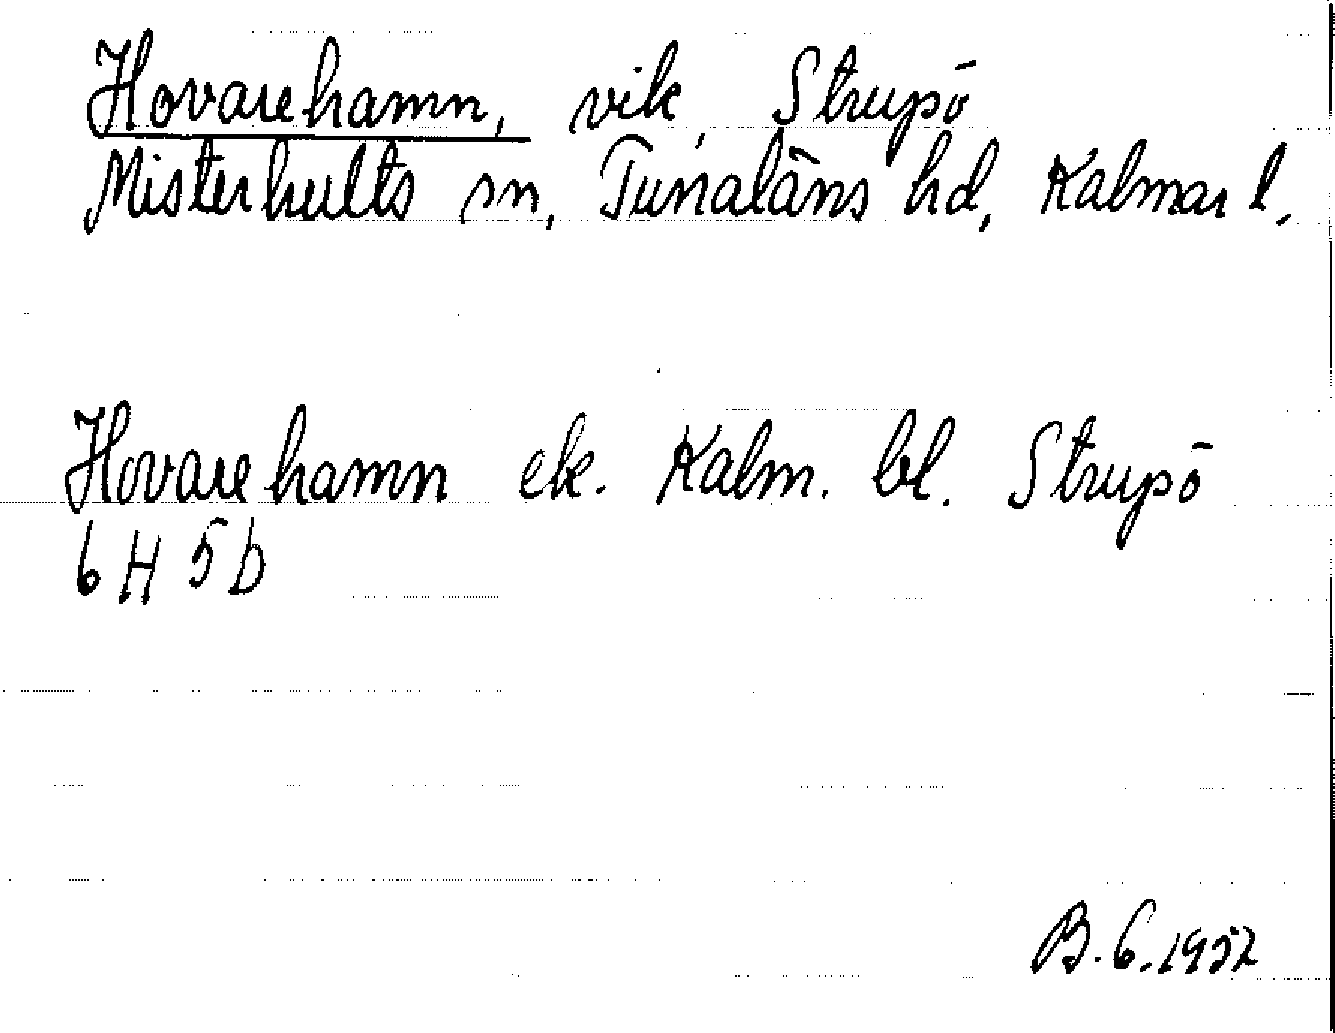 Hovarehamn, vik, Strupö
Misterhults sn, Tunaläns hd, Kalmar l.
Hovarehamn ek. Kalm. bl. Strupö
6 H 5 b
B. 6. 1952